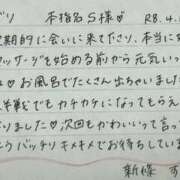 り 本指名S様♥ R8.4.
期的に会いに来て下さり、本当に
ッサージを始める前から元気いっ
お風呂でたくさん出ちゃいました
半戦でもカチカチになってもらえ
りました♥次回もかわいいって言っ
クバッチリキメキメでお待ちしていま
新條 す